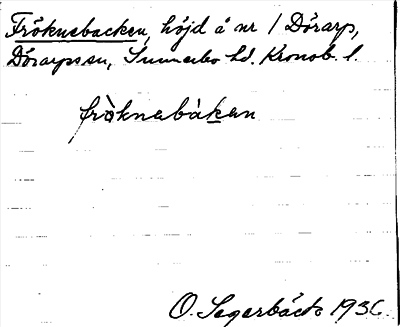 Fröknebacken, höjd å nr 1 Dörarp,
Dörarps sn, Sunnerbo hd. Kronob. l.
frö̀knabàkan
O. Sagerbäck 1936.